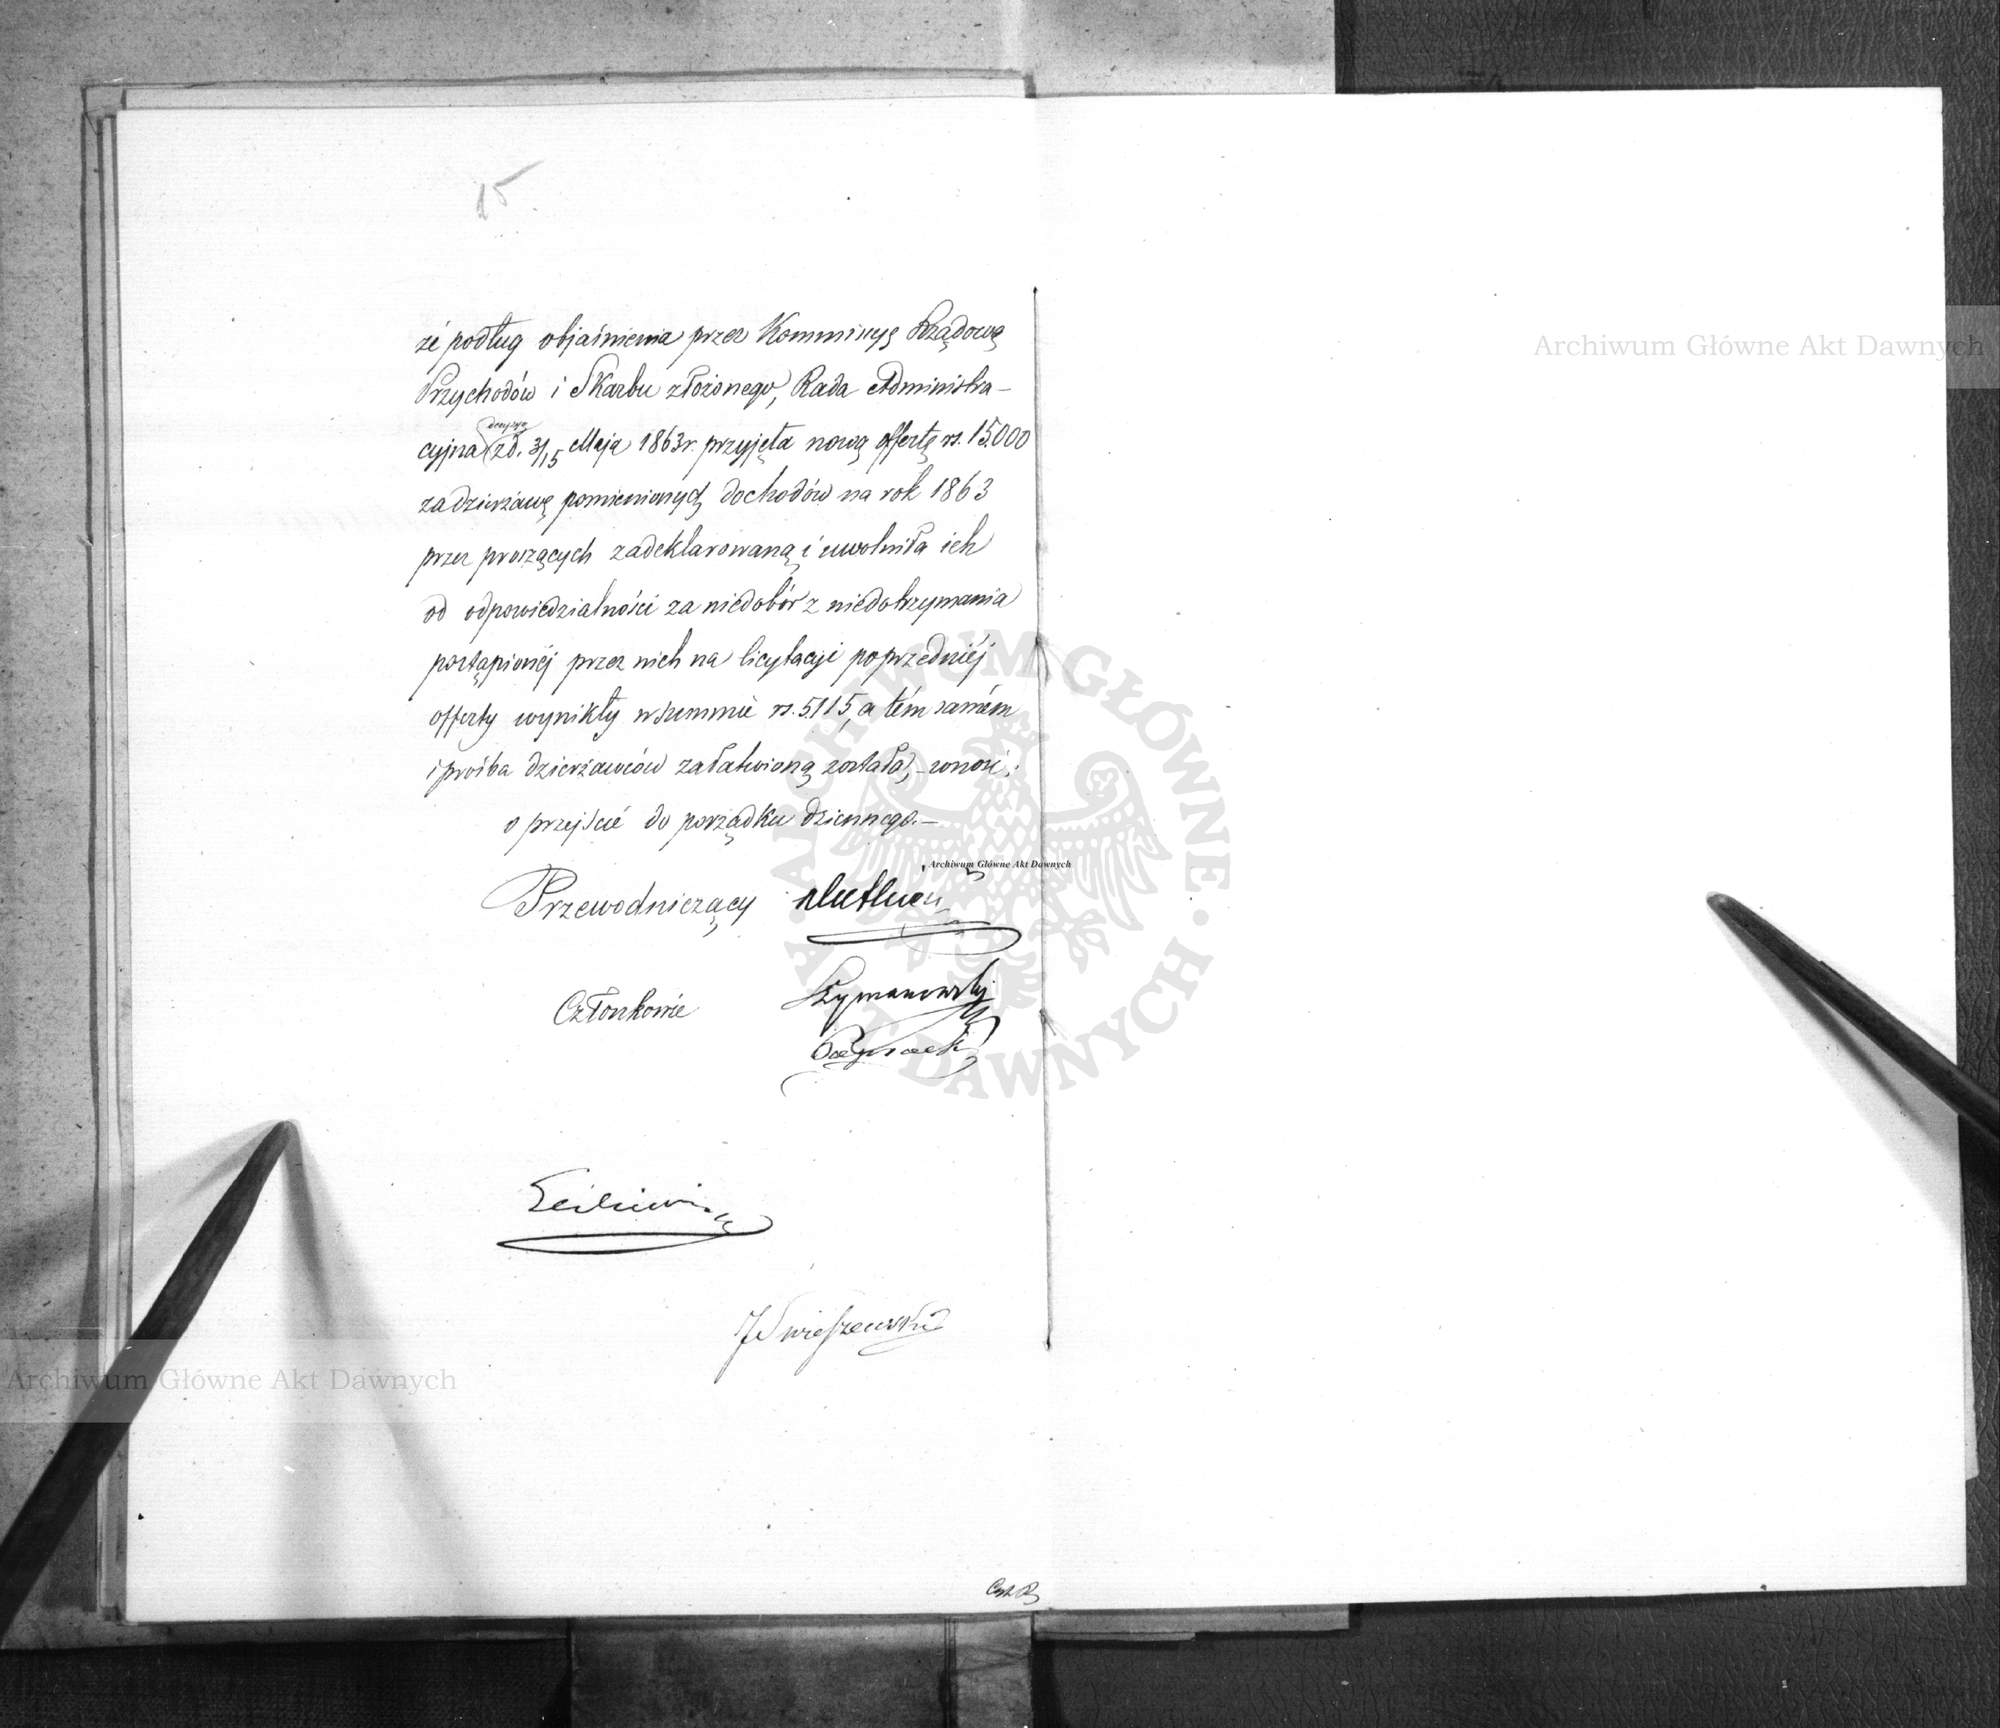 15
że podług objaśnienia przez Kommissyę Rządową
Przychodów i Skarbu złożonego, Rada Administra-
cyjna decyzyą z d. 3/15 Maja 1863 r. przyjęła nową offertę rs. 15.000
za dzierżawę pomienionych dochodów na rok 1863
przez proszących zadeklarowaną i uwolniła ich
od odpowiedzialności za niedobór z niedotrzymania
postąpionéj przez nich na licytacyi poprzedniéj
offerty wynikły w summie rs. 5115, a tém samém
i prośba dzierżawców załatwioną została, – wnosi:
o przejście do porządku dziennego. –
Przewodniczący
Członkowie Szymanowski
Archiwum Główne Akt Dawnych
Archiwum Główne Akt Dawnych
Archiwum Główne Akt Dawnych
ARCHIWUM GŁÓWNE AKT DAWNYCH